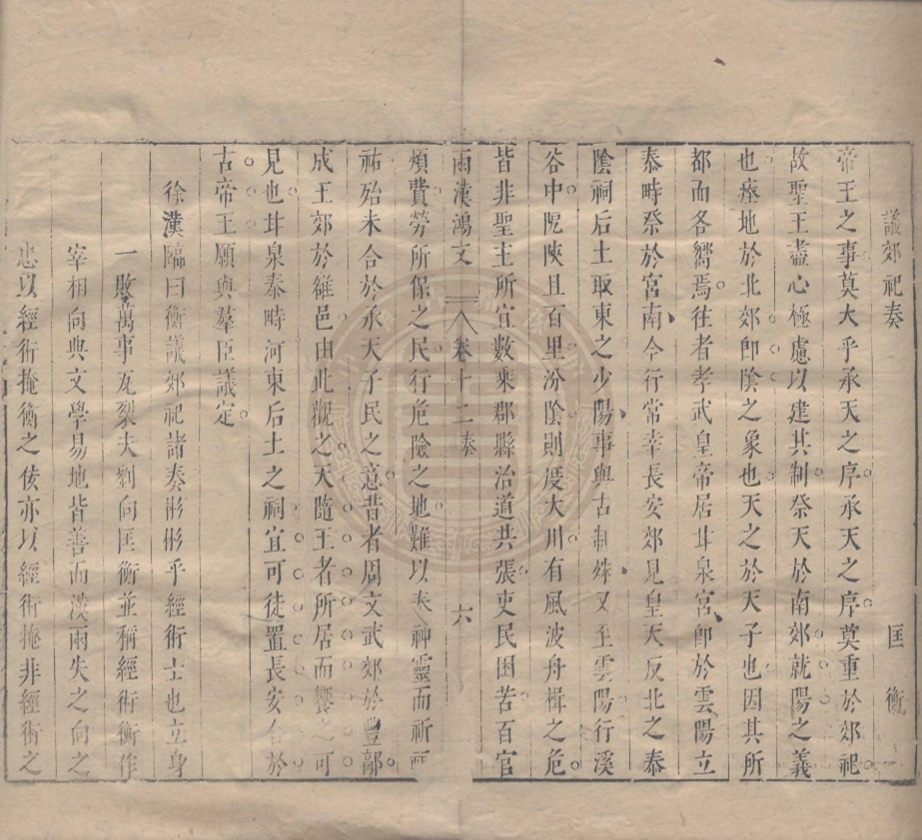 議郊祀奏　匡衡
帝王之事莫大乎承天之序承天之序莫重於郊祀
故聖王盡心極慮以建其制祭天於南郊就陽之義
也瘞地於北郊卽陰之象也天之於天子也因其所
都而各饗焉往者孝武皇帝居甘泉宮卽於雲陽立
泰畤祭於宮南今行常幸長安郊見皇天反北之泰
陰祠后土反東之少陽事與古制殊又至雲陽行溪
谷中阸陜且百里汾陰則度大川有風波舟楫之危
皆非聖主所宜數乘郡縣治道共張吏民困苦百官
兩漢鴻文　卷十二奏　六
煩費勞所保之民行危險之地難以奉神靈而祈
祐殆未合於承天子民之意昔者周文武郊於豐鄗
成王郊於雒邑由此觀之天隨王者所居而饗之可
見也甘泉泰畤河東后土之祠宜可徙置長安合於
古帝王願與羣臣議定
徐漢臨曰衡議郊祀諸奏彬彬乎經術士也立身
一敗萬事瓦裂夫劉向匡衡並稱經術衡作
宰相向典文學易地皆善而漢兩失之向之
忠以經術掩衡之佞亦以經術掩非經術之